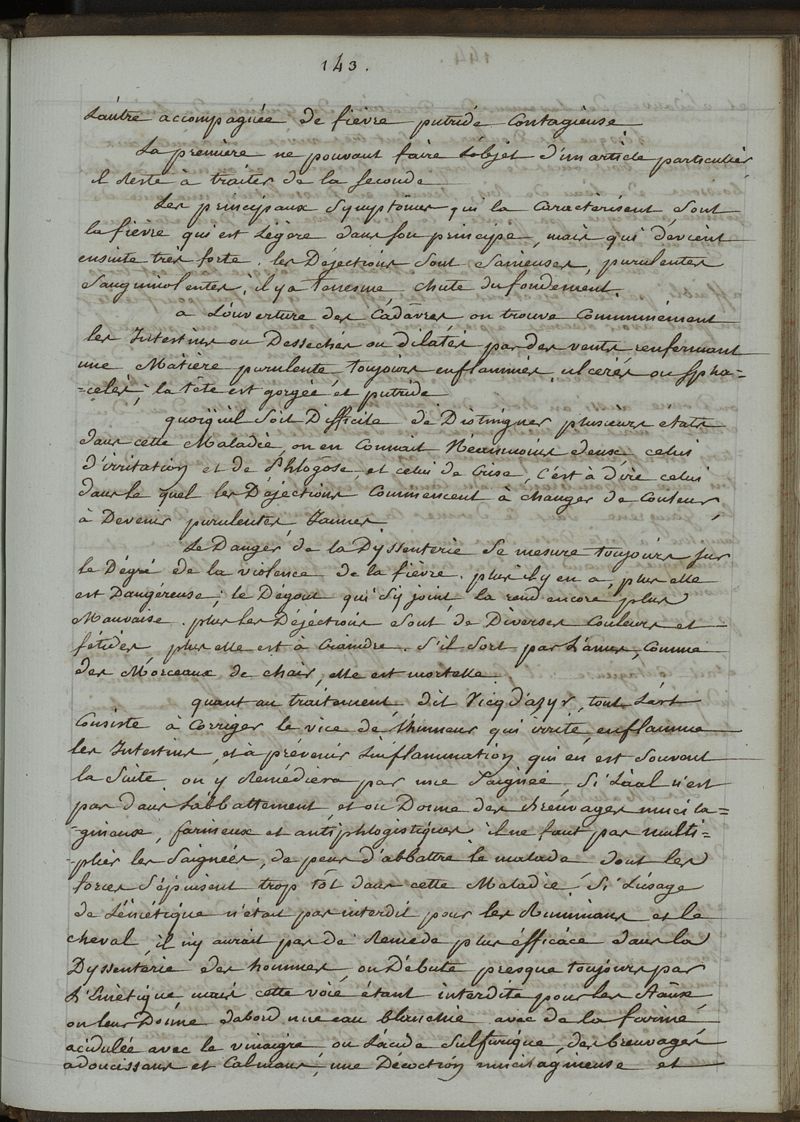 143.
L'autre accompagnée de fièvre putride Contagieuse
La première ne pouvant faire L'objet d'un article particulier,
il Reste à traiter de la Seconde
Les principaux Symptômes qui la Caractérisent Sont
la fièvre qui est Légère dans son principe, mais qui devient
ensuite très forte. les Déjections Sont Sanieuses, purulentes
Sanguinolentes, il y a tenesme chute du fondement.
a L'ouverture des Cadavres on trouve Communément
les Intestins ou Dessechés ou dilatés par des vents renfermant
une Matière purulente toujours enflammés, ulcerés ou Spha=
=celés, la tête est gorgée et putride
quoiqu'il Soit Difficile de Distinguer plusieurs états
dans cette Maladie, on en Connait Néanmoins deux celui
d'irritation et de Phlogose, et celui de Crise, C'est à dire celui
dans le quel les Déjections Commencent à changer de Couleur,
à Devenir purulentes Jaunes.
Le Danger de la Dyssenterie Se mesure toujours sur
le Dégré de la violence de la fièvre. plus il y en a, plus elle
est Dangéreuse; le Dégout qui S'y joint la rend encore plus
Mauvaise. plus les Déjéctions Sont de Diverses Couleurs et
fetides, plus elle est à Craindre. S'il Sort par L'anus, Comme
des Morceaux de chair, elle est mortelle.
quant au traitement, dit Vicq d'azyr, tout L'art
Consiste à Corriger le vice de L'humeur qui irrite, enflamme
les Intestins, et à prévenir L'inflammation qui en est Souvent
la Suite on y Remédiera par une Saignée, Si L'aal n'est
pas dans L'abbattement, et on Donne des Breuvages mucila=
=gineux, farineux et antiphlogistiques il ne faut pas multi=
=plier les Saignées, de peur d'abbattre le malade dont les
forces S'épuisent trop tôt dans cette Maladie. Si L'usage
de L'émétique n'était pas interdit pour les Ruminans et le
cheval, il n'y aurait pas de Remede plus éfficace dans la
Dyssenterie des hommes, on Débute presque toujours par
L'Emétique mais cette voie étant interdite pour les aaux,
on leur Donne d'abord une eau blanchie avec de la farine
acidulée avec le vinaigre ou L'acide Sulfurique, des breuvages
adoucissans et Calmans, une Décoction mucilagineuse et